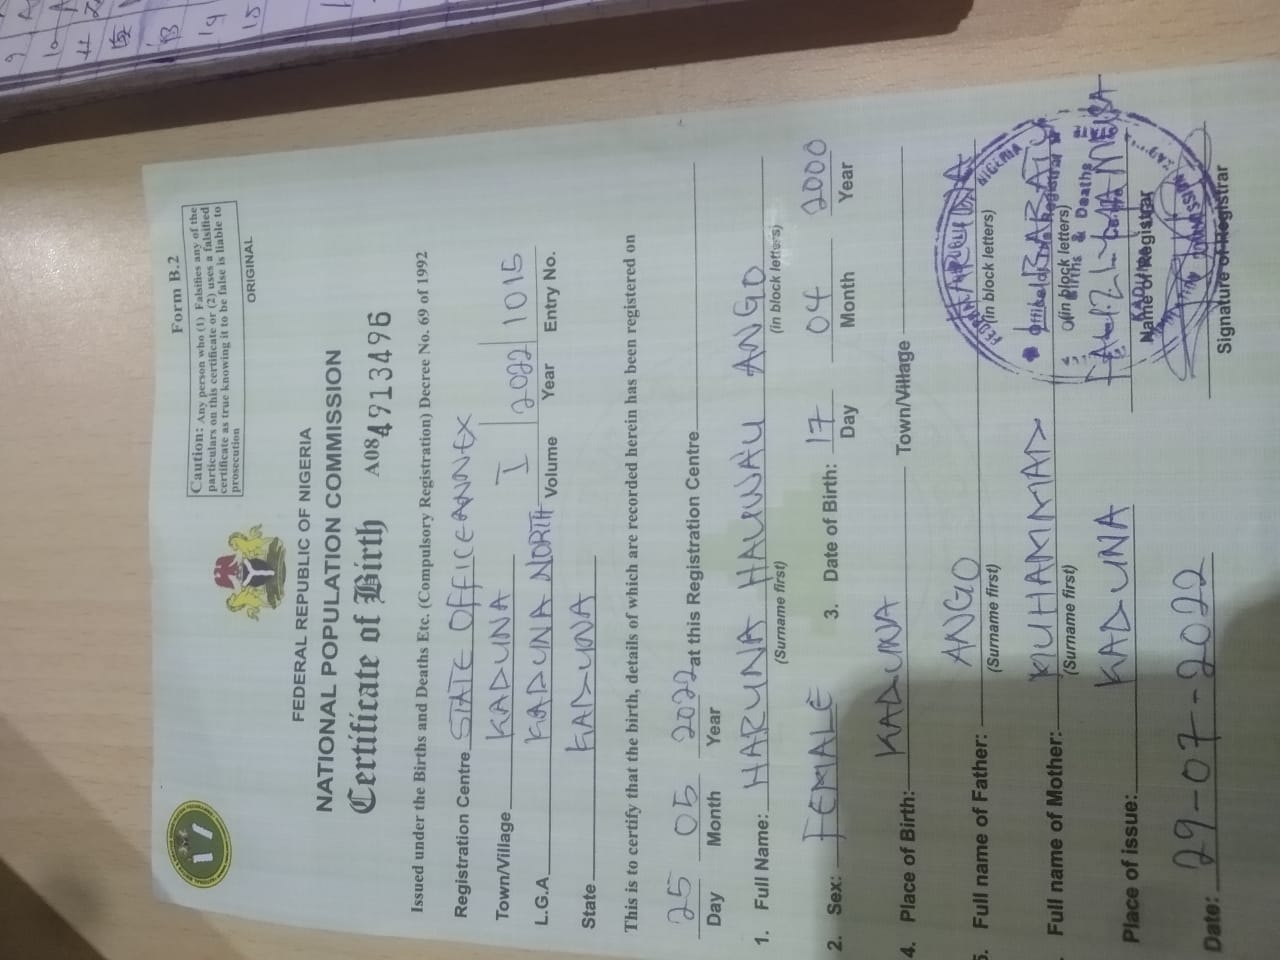 Form B.2
Caution: Any person who (1) Falsifies any of the
particulars on this certificate or (2) uses a falsified
certificate as true knowing it to be false is liable to
prosecution
ORIGINAL
FEDERAL REPUBLIC OF NIGERIA
NATIONAL POPULATION COMMISSION
Certificate of Birth A084913496
Issued under the Births and Deaths Etc. (Compulsory Registration) Decree No. 69 of 1992
Registration Centre STATE OFFICE ANNEX
Town/Village KADUNA I 2022 1015
L.G.A KADUNA NORTH Volume Year Entry No.
State KADUNA
This is to certify that the birth, details of which are recorded herein has been registered on
25 05 2022 at this Registration Centre
Day Month Year
1. Full Name: HARUNA HAUWAU ANGO
(Surname first) (in block letters)
2. Sex: FEMALE 3. Date of Birth: 17 04 2000
Day Month Year
4. Place of Birth: KADUNA Town/Village
5. Full name of Father: ANGO HARUNA
(Surname first) (in block letters)
Full name of Mother: MUHAMMAD BARATU
(Surname first) (in block letters)
Place of issue: KADUNA
Name of Registrar
Date: 29-07-2022
Signature of Registrar
NIGERIA
Births & Deaths